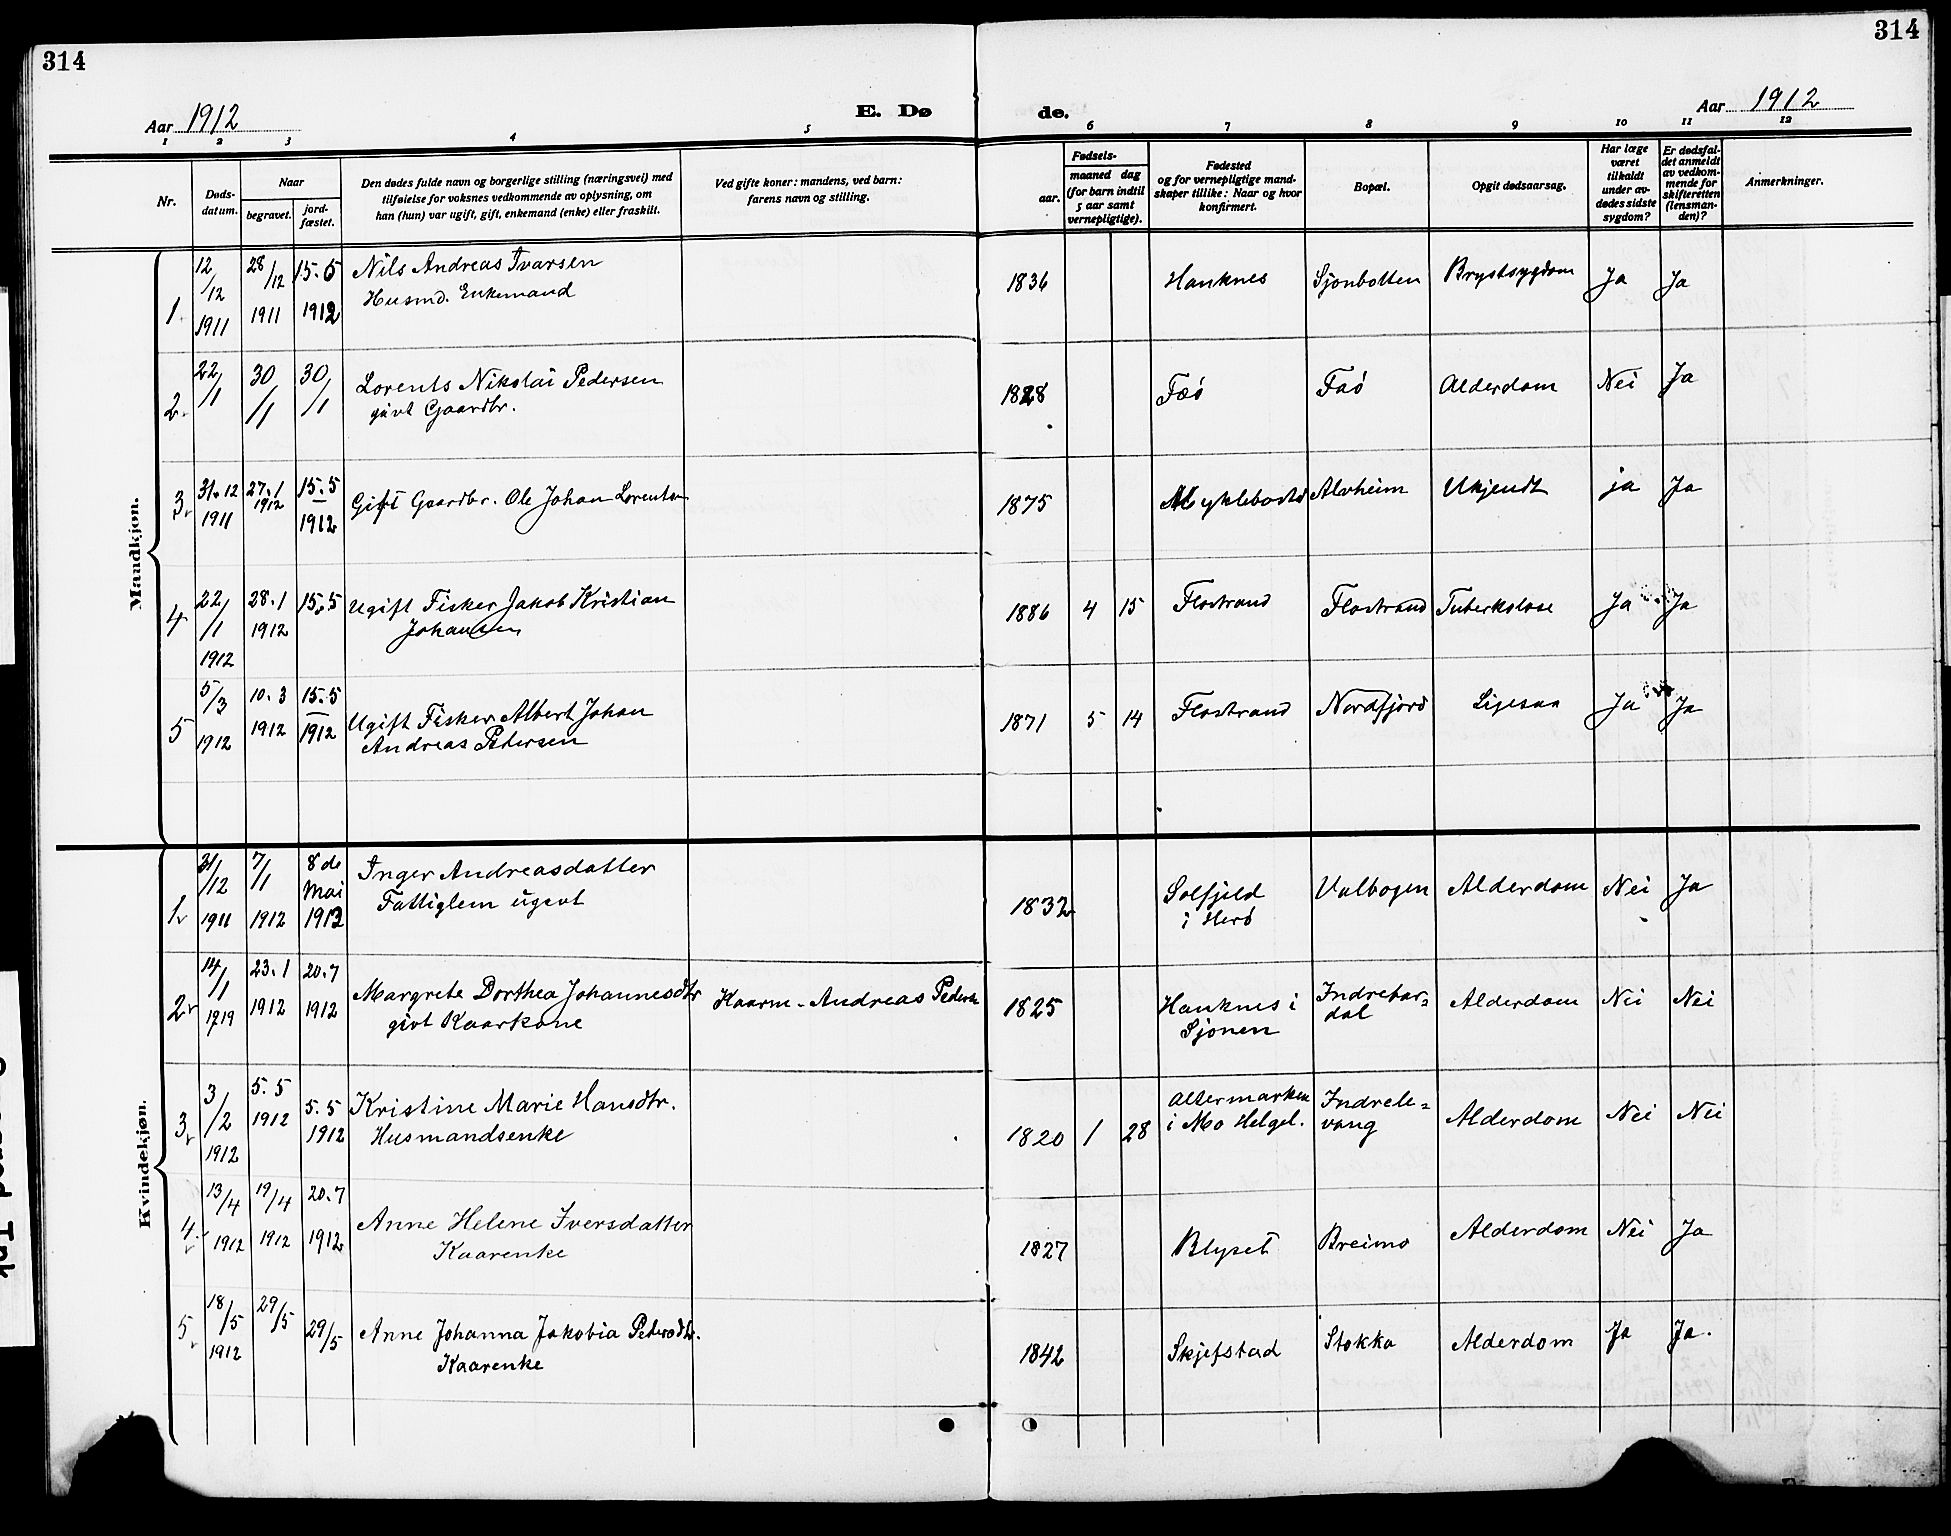 314
314
Aar 1912
E. Dø
de.
Aar 1912
1 2 3 4 5 6 7 8 9 10 11 12
Nr.
Døds-
datum.
Naar
begravet.
jord-
fæstet.
Den dødes fulde navn og borgerlige stilling (næringsvei) med
tilføielse for voksnes vedkommende av oplysning, om
han (hun) var ugift, gift, enkemand (enke) eller fraskilt.
Ved gifte koner: mandens, ved barn:
farens navn og stilling.
Fødsels-
aar.
maaned dag
(for barn indtil
5 aar samt
vernepligtige).
Fødested
og for vernepligtige mand-
skaper tillike: Naar og hvor
konfirmert.
Bopæl.
Opgit dødsaarsag.
Har læge
været
tilkaldt
under av-
dødes sidste
sygdom?
Er dødsfal-
det anmeldt
av vedkom-
mende for
skifteretten
(lensman-
den)?
Anmerkninger.
Mandkjøn.
1. 12/12 1911 28/12 1911 15.5 1912 Nils Andreas Ivarsen
Husmd. Enkemand
1836 Hauknes Sjonbotten Brystsygdom Ja Ja
2. 22/1 30/1 30/1 Lorents Nikolai Pedersen
givt Gaardbr.
1828 Fæö Faö Alderdom Nei Ja
3. 31.12 1911 27.1 1912 15.5 1912 Gift Gaardbr. Ole Johan Lorentsen
1875 Myklebostad Alvheim Ukjendt ja Ja
4 22/1 1912 28.1 1912 15.5 Ugift Fisker Jakob Kristian
Johansen
1886 4 15 Flostrand Flostrand Tuberkolose Ja Ja
5 5/3 1912 10.3 1912 15.5 1912 Ugift Fisker Albert Johan
Andreas Pedersen
1871 5 14 Flostrand Nordfjord Ligesaa Ja Ja
Kvindekjøn.
1. 31/12 1911 7/1 1912 8de Mai 1912 Inger Andreasdatter
Fattiglem ugivt
1832 Solfjeld
i Herö
Valbogen Alderdom Nei Ja
2 14/1 23.1 1912 20.7 1912 Margrete Dorthea Johannesdtr
givt Kaarkone
Kaarm. Andreas Peders
1825 Hauknes i
Sjonen
Indrebar=
dal
Alderdom Nei Nei
3 3/2 1912 5.5 1912 5.5 1912 Kristine Marie Hansdtr.
Husmandsenke
1820 1 28 Altermarken
i Mo Helgel.
Indrele=
vang
Alderdom Nei Nei
4 13/4 1912 19/4 1912 20.7 1912 Anne Helene Iversdatter
Kaarenke
1827 Blyset Breimo Alderdom Nei Ja
5 18/5 1912 29/5 29/5 Anne Johanna Jakobia Pedersdtr.
Kaarenke
1842 Skjefstad Stokka Alderdom Ja Ja.